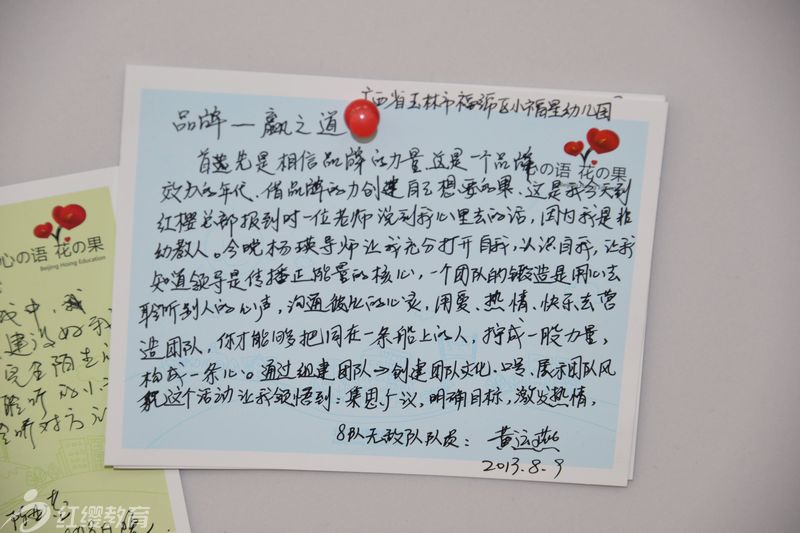 广西省玉林市福绵区小福星幼儿园
品牌—赢之道
心の语 花の果
首先是相信品牌的力量。这是一个品牌
效力的年代、借品牌的力创建自己想要的果。这是我今天到
红樱总部报到时一位老师说到我心里去的话，因为我是非
幼教人。今晚杨瑛导师让我充分打开自我，认识自我，让我
知道领导是传播正能量的核心，一个团队的锻造是用心去
聆听别人的心声，沟通彼此的心灵，用爱、热情、快乐去营
造团队，你才能够把同在一条船上的人，拧成一股力量，
构成一条心。通过组建团队→创建团队文化、口号、展示团队风
貌这个活动让我领悟到：集思广议，明确目标，激发热情。
8队无敌队队员：黄运燕
2013.8.9
心の语 花の果
Beijing Hoing Education
中，我
建设好我
完全陌生
聆听的小
听对方
红缨教育